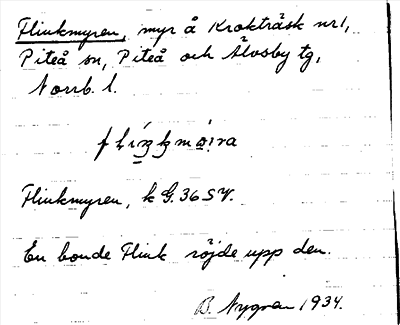 Flinkmyren, myr å Krokträsk nr 1,
Piteå sn, Piteå och Älvsby tg,
Norrb. l.
Flinkmyren, k G. 36 SV.
En bonde Flink röjde upp den.
B. Nygren 1934.